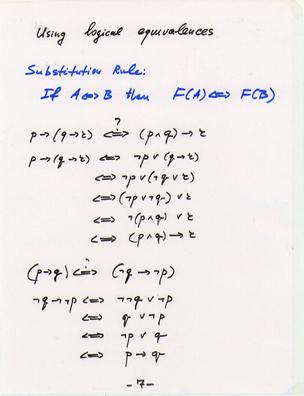 Using logical equivalences
Substitution Rule:
If A⇔B then F(A)⇔F(B)
?
p→(q→r) ⇔ (p∧q)→r
p→(q→r) ⇔ ¬p∨(q→r)
⇔ ¬p∨(¬q∨r)
⇔ (¬p∨¬q)∨r
⇔ ¬(p∧q)∨r
⇔ (p∧q)→r
?
(p→q) ⇔ (¬q→¬p)
¬q→¬p ⇔ ¬¬q∨¬p
⇔ q∨¬p
⇔ ¬p∨q
⇔ p→q
-7-